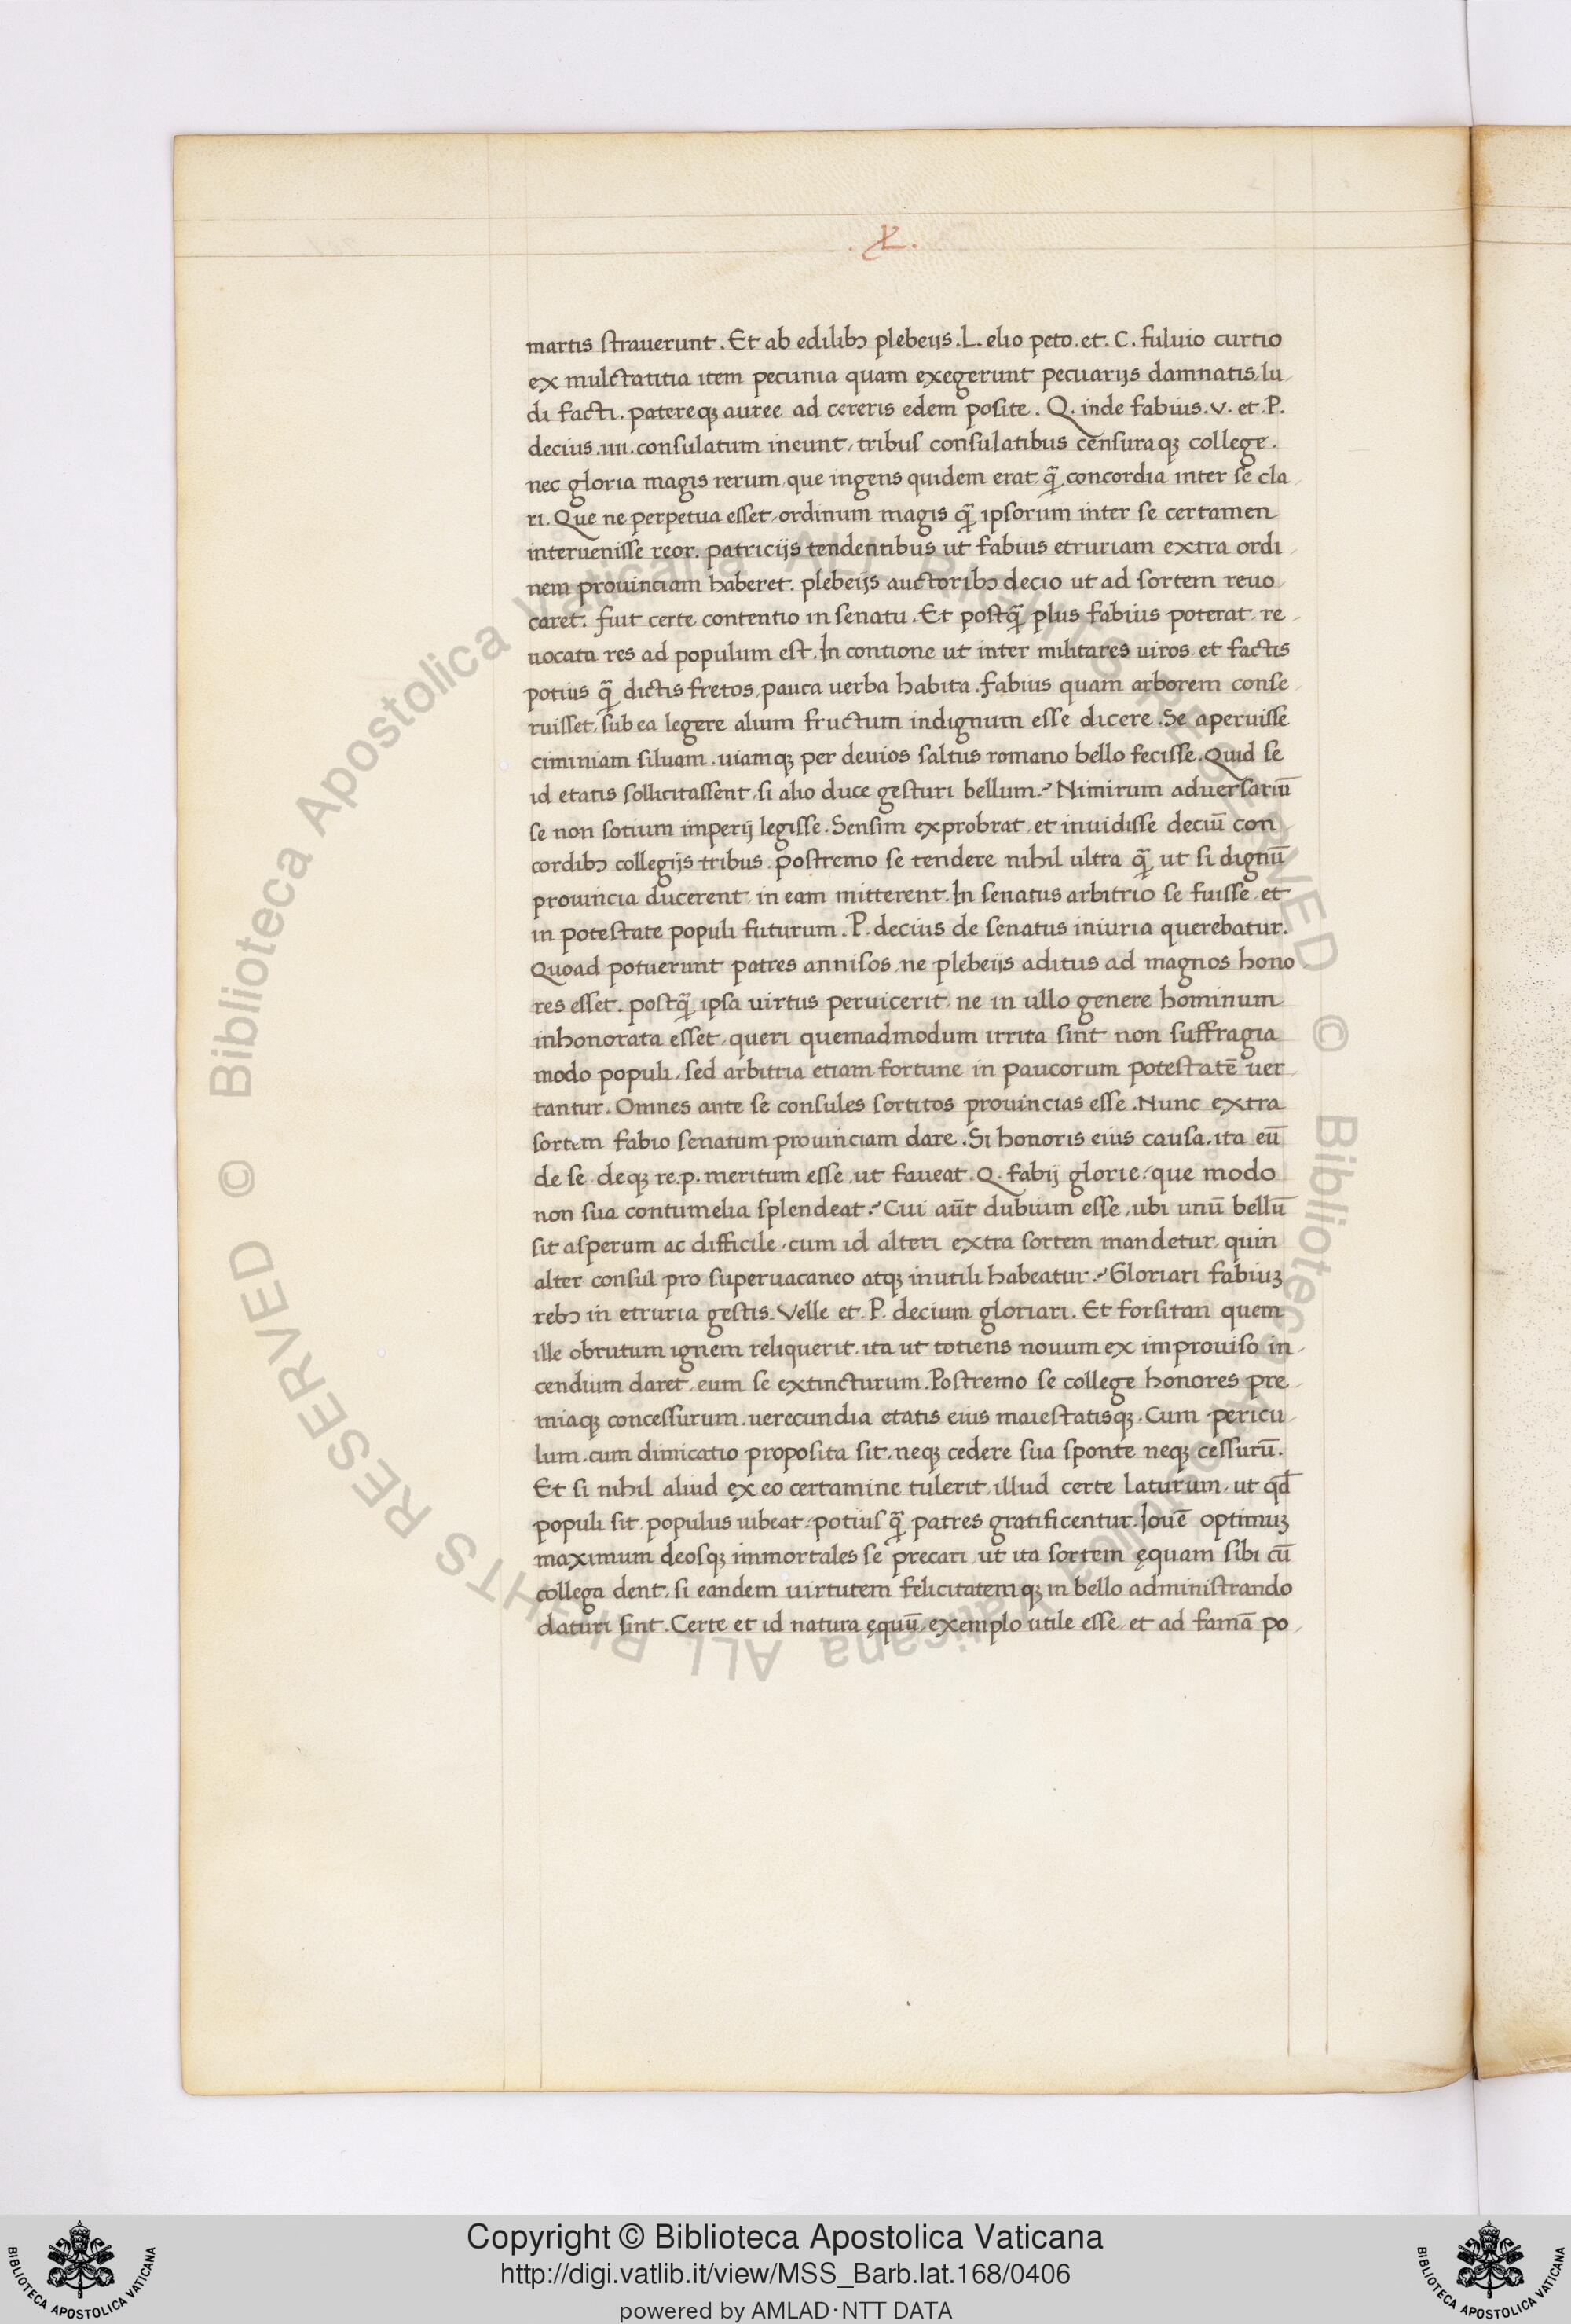 .X.
martis straverunt. Et ab edilibꝫ plebeijs. L. elio peto. et. C. fuluio curtio
ex mulctatitia item pecunia quam exegerunt pecuarijs damnatis, lu
di facti. patereqꝫ auree ad cereris edem posite. Q. inde fabius. v. et. P.
decius. iiii. consulatum ineunt, tribus consulatibus censuraqꝫ college.
nec gloria magis rerum, que ingens quidem erat, q̃ concordia inter se cla
ri. Que ne perpetua esset, ordinum magis q̃ ipsorum inter se certamen
interuenisse reor. patricijs tendentibus ut fabius etruriam extra ordi
nem prouinciam haberet. plebeijs auctoribꝫ decio ut ad sortem reuo
caret. fuit certe contentio in senatu. Et postq̃ plus fabius poterat, re
uocata res ad populum est. In contione ut inter militares uiros, et factis
potius q̃ dictis fretos, pauca uerba habita. fabius quam arborem conse
ruisset, sub ea legere alium fructum indignum esse dicere. Se aperuisse
ciminiam siluam. uiamqꝫ per deuios saltus romano bello fecisse. Quid se
id etatis sollicitassent, si alio duce gesturi bellum? Nimirum aduersariū
se non sotium imperij legisse. Sensim exprobrat, et inuidisse deciū con
cordibꝫ collegijs tribus. postremo se tendere nihil ultra q̃ ut si dignū
prouincia ducerent, in eam mitterent. In senatus arbitrio se fuisse, et
in potestate populi futurum. P. decius de senatus iniuria querebatur.
Quoad potuerunt patres annisos, ne plebeijs aditus ad magnos hono
res esset. postq̃ ipsa uirtus peruicerit, ne in ullo genere hominum
inhonorata esset, queri quemadmodum irrita sint non suffragia
modo populi, sed arbitria etiam fortune in paucorum potestatē uer
tantur. Omnes ante se consules sortitos prouincias esse. Nunc extra
sortem fabio senatum prouinciam dare. Si honoris eius causa. ita eū
de se, deqꝫ re.p. meritum esse, ut faueat. Q. fabij glorie, que modo
non sua contumelia splendeat? Cui aūt dubium esse, ubi unū bellū
sit asperum ac difficile, cum id alteri extra sortem mandetur, quin
alter consul pro superuacaneo atqꝫ inutili habeatur? Gloriari fabiuꝫ
rebꝫ in etruria gestis. Velle et. P. decium gloriari. Et forsitan quem
ille obrutum ignem reliquerit, ita ut totiens nouum ex improuiso in
cendium daret, eum se extincturum. Postremo se college honores pre
miaqꝫ concessurum. uerecundia etatis eius maiestatisqꝫ. Cum pericu
lum. cum dimicatio proposita sit, neqꝫ cedere sua sponte neqꝫ cessurū.
Et si nihil aliud ex eo certamine tulerit, illud certe laturum, ut qd̄
populi sit, populus uibeat, potius q̃ patres gratificentur. Iouē optimuꝫ
maximum deosqꝫ immortales se precari, ut ita sortem ęquam sibi cū
collega dent, si eandem uirtutem felicitatemqꝫ in bello administrando
daturi sint. Certe et id natura ęquū, exemplo utile esse, et ad famā po
Copyright © Biblioteca Apostolica Vaticana
http://digi.vatlib.it/view/MSS_Barb.lat.168/0406
powered by AMLAD·NTT DATA
BIBLIOTECA APOSTOLICA VATICANA
BIBLIOTECA APOSTOLICA VATICANA
© Biblioteca Apostolica Vaticana ALL RIGHTS RESERVED © Biblioteca Apostolica Vaticana ALL RIGHTS RESERVED